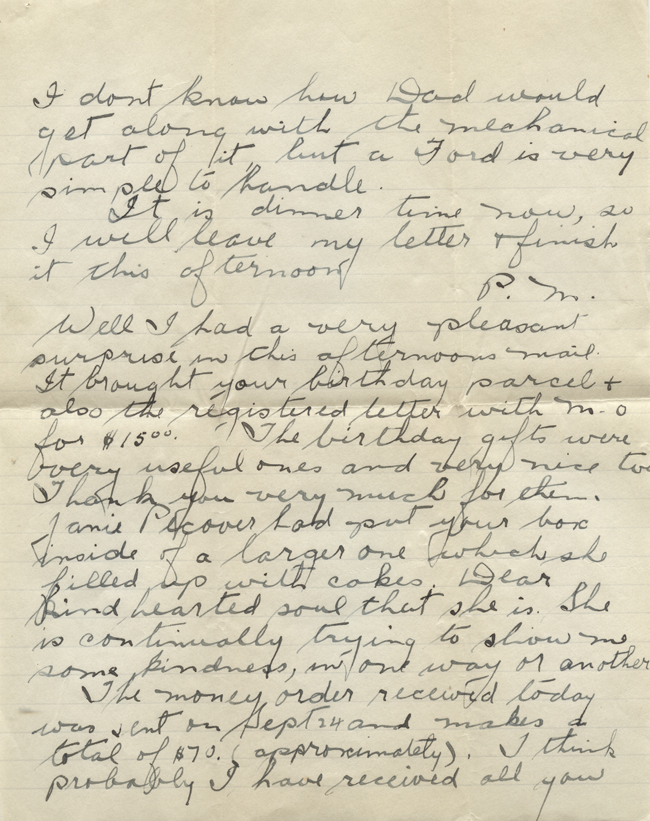 I dont know how Dad would
get along with the mechanical
part of it, but a Ford is very
simple to handle.
It is dinner time now, so
I will leave my letter & finish
it this afternoon
P. M.
Well I had a very pleasant
surprise in this afternoons mail.
It brought your birthday parcel &
also the registered letter with M-O
for $15.00. The birthday gifts were
very useful ones and very nice too
Thank you very much for them.
Janie had put your box
inside of a larger one which she
filled up with cakes. Dear
kind hearted soul that she is. She
is continually trying to show me
some kindness, in one way or another
The money order received today
was sent on Sept 24 and makes a
total of $70. (approximately). I think
probably I have received all you